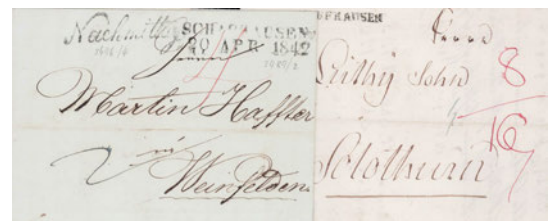 Nachmittag SCHAFFHAUSEN
20 APR. 1842
Herrn
4
Martin Haffter
in
Weinfelden
FHAUSEN
Herrn
Lüthy Sohn
8
16
Solothurn